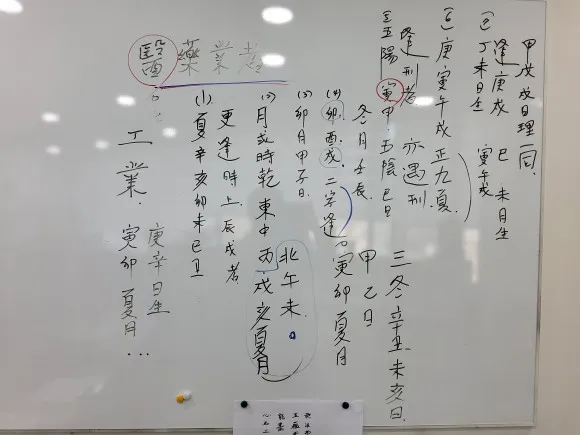 醫藥業者
(1) 夏辛亥卯未巳丑
更逢時上辰戌者
(2) 月或時乾 東中丙戌亥夏月
北午未
(3) 卯月甲子日
(4) 卯酉戌 二字逢 寅卯夏月
甲乙日
三冬辛丑未亥日
冬月壬辰
五陽 寅甲 五陰 巳日
逢刑者 亦遇刑
庚寅午戌 正九夏
丁未日生 寅午戌
逢庚戌 巳未月生
日理一同
工業
庚辛日生
寅卯夏月...